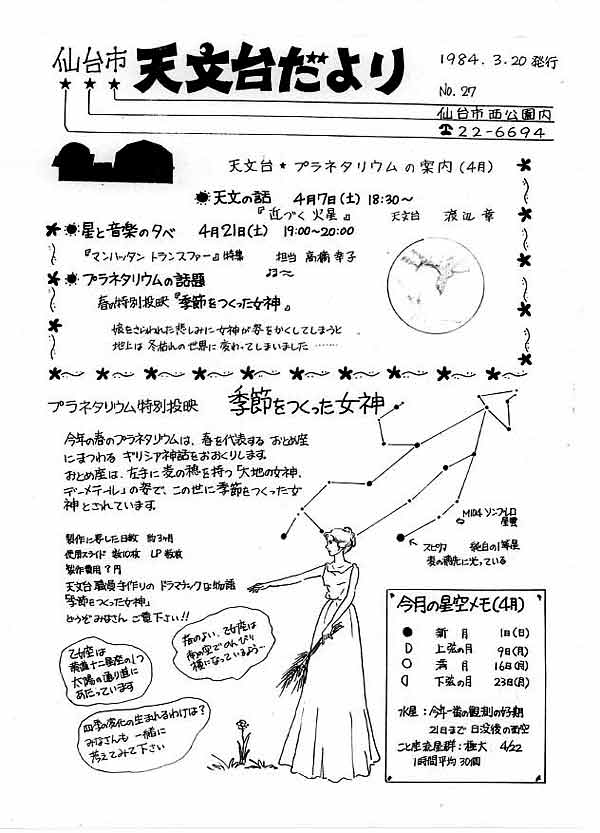 仙台市 天文台だより
1984.3.20 発行
No.27
仙台市西公園内
☎22-6694
天文台★プラネタリウムの案内(4月)
天文の話 4月7日(土) 18:30〜
『近づく火星』 天文台 渡辺 章
星と音楽の夕べ 4月21日(土) 19:00〜20:00
『マンハッタントランスファー』特集 担当 高橋幸子
プラネタリウムの話題
春の特別投映『季節をつくった女神』
娘をさらわれた悲しみに女神が姿をかくしてしまうと
地上は冬枯れの世界に変わってしまいました……
プラネタリウム特別投映 季節をつくった女神
今年の春のプラネタリウムは、春を代表する おとめ座
にまつわる ギリシア神話をおおくりします。
おとめ座は、左手に麦の穂を持つ「大地の女神、
デーメテール」の姿で、この世に季節をつくった女
神とされています。
製作に要した日数 約3ヶ月
使用スライド 数10枚 LP数枚
製作費用?円
天文台職員手作りの ドラマチックな物語
「季節をつくった女神」
どうぞみなさん ご覧下さい!!
M104 ソンブレロ
星雲
スピカ 純白の1等星
麦の穂先に光っている
乙女座は
黄道十二星座の1つ
太陽の通り道に
あたっています
春のよい、乙女座は
南の空でのんびり
横になっているよう…
四季の変化の生まれるわけは?
みなさんも 一緒に
考えてみて下さい
今月の星空メモ(4月)
新月 1日(日)
上弦の月 9日(月)
満月 16日(月)
下弦の月 23日(月)
水星:今年一番の観測の好期
21日まで 日没後の西空
こと座流星群:極大 4/22
1時間平均30個